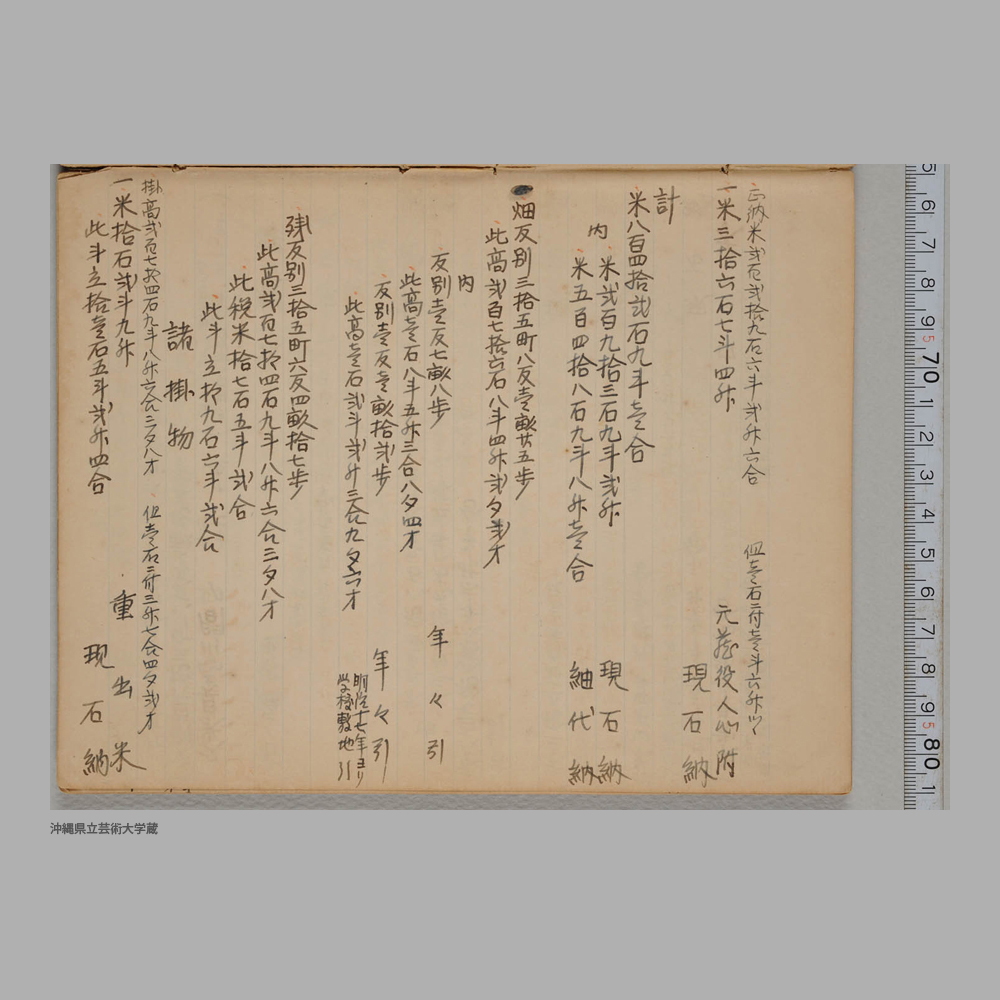 正納米弐百弐拾九石六斗弐升六合 但壱石ニ付壱斗六升ツヽ
一米三拾六石七斗四升 元蔵役人心附
現石納
計
米八百四拾弐石九斗壱合
内 米弐百九拾三石九斗弐升 現石納
米五百四拾八石九斗八升壱合 紬代納
畑反別三拾五町八反壱畝廿五歩
此高弐百七拾六石八斗四升弐夕弐才
内
反別壱反七畝八歩 年々引
此高壱石八斗五升三合八夕四才
反別壱反壱畝拾弐歩 年々引
此高壱石弐斗弐升三合九夕六才 明治十七年ヨリ学校敷地引
残反別三拾五町六反四畝拾七歩
此高弐百七拾四石九斗八升六合三夕八才
此税米拾七石五斗弐合
此斗立拾九石六斗弐合
諸掛物
掛高弐百七拾四石九斗八升六合三夕八才 但壱石ニ付三升七合四夕弐才
一米拾石弐斗九升 重出米
此斗立拾壱石五斗弐升四合 現石納
5 6 7 8 9 5 70 1 2 3 4 5 6 7 8 9 5 80 1
沖縄県立芸術大学蔵